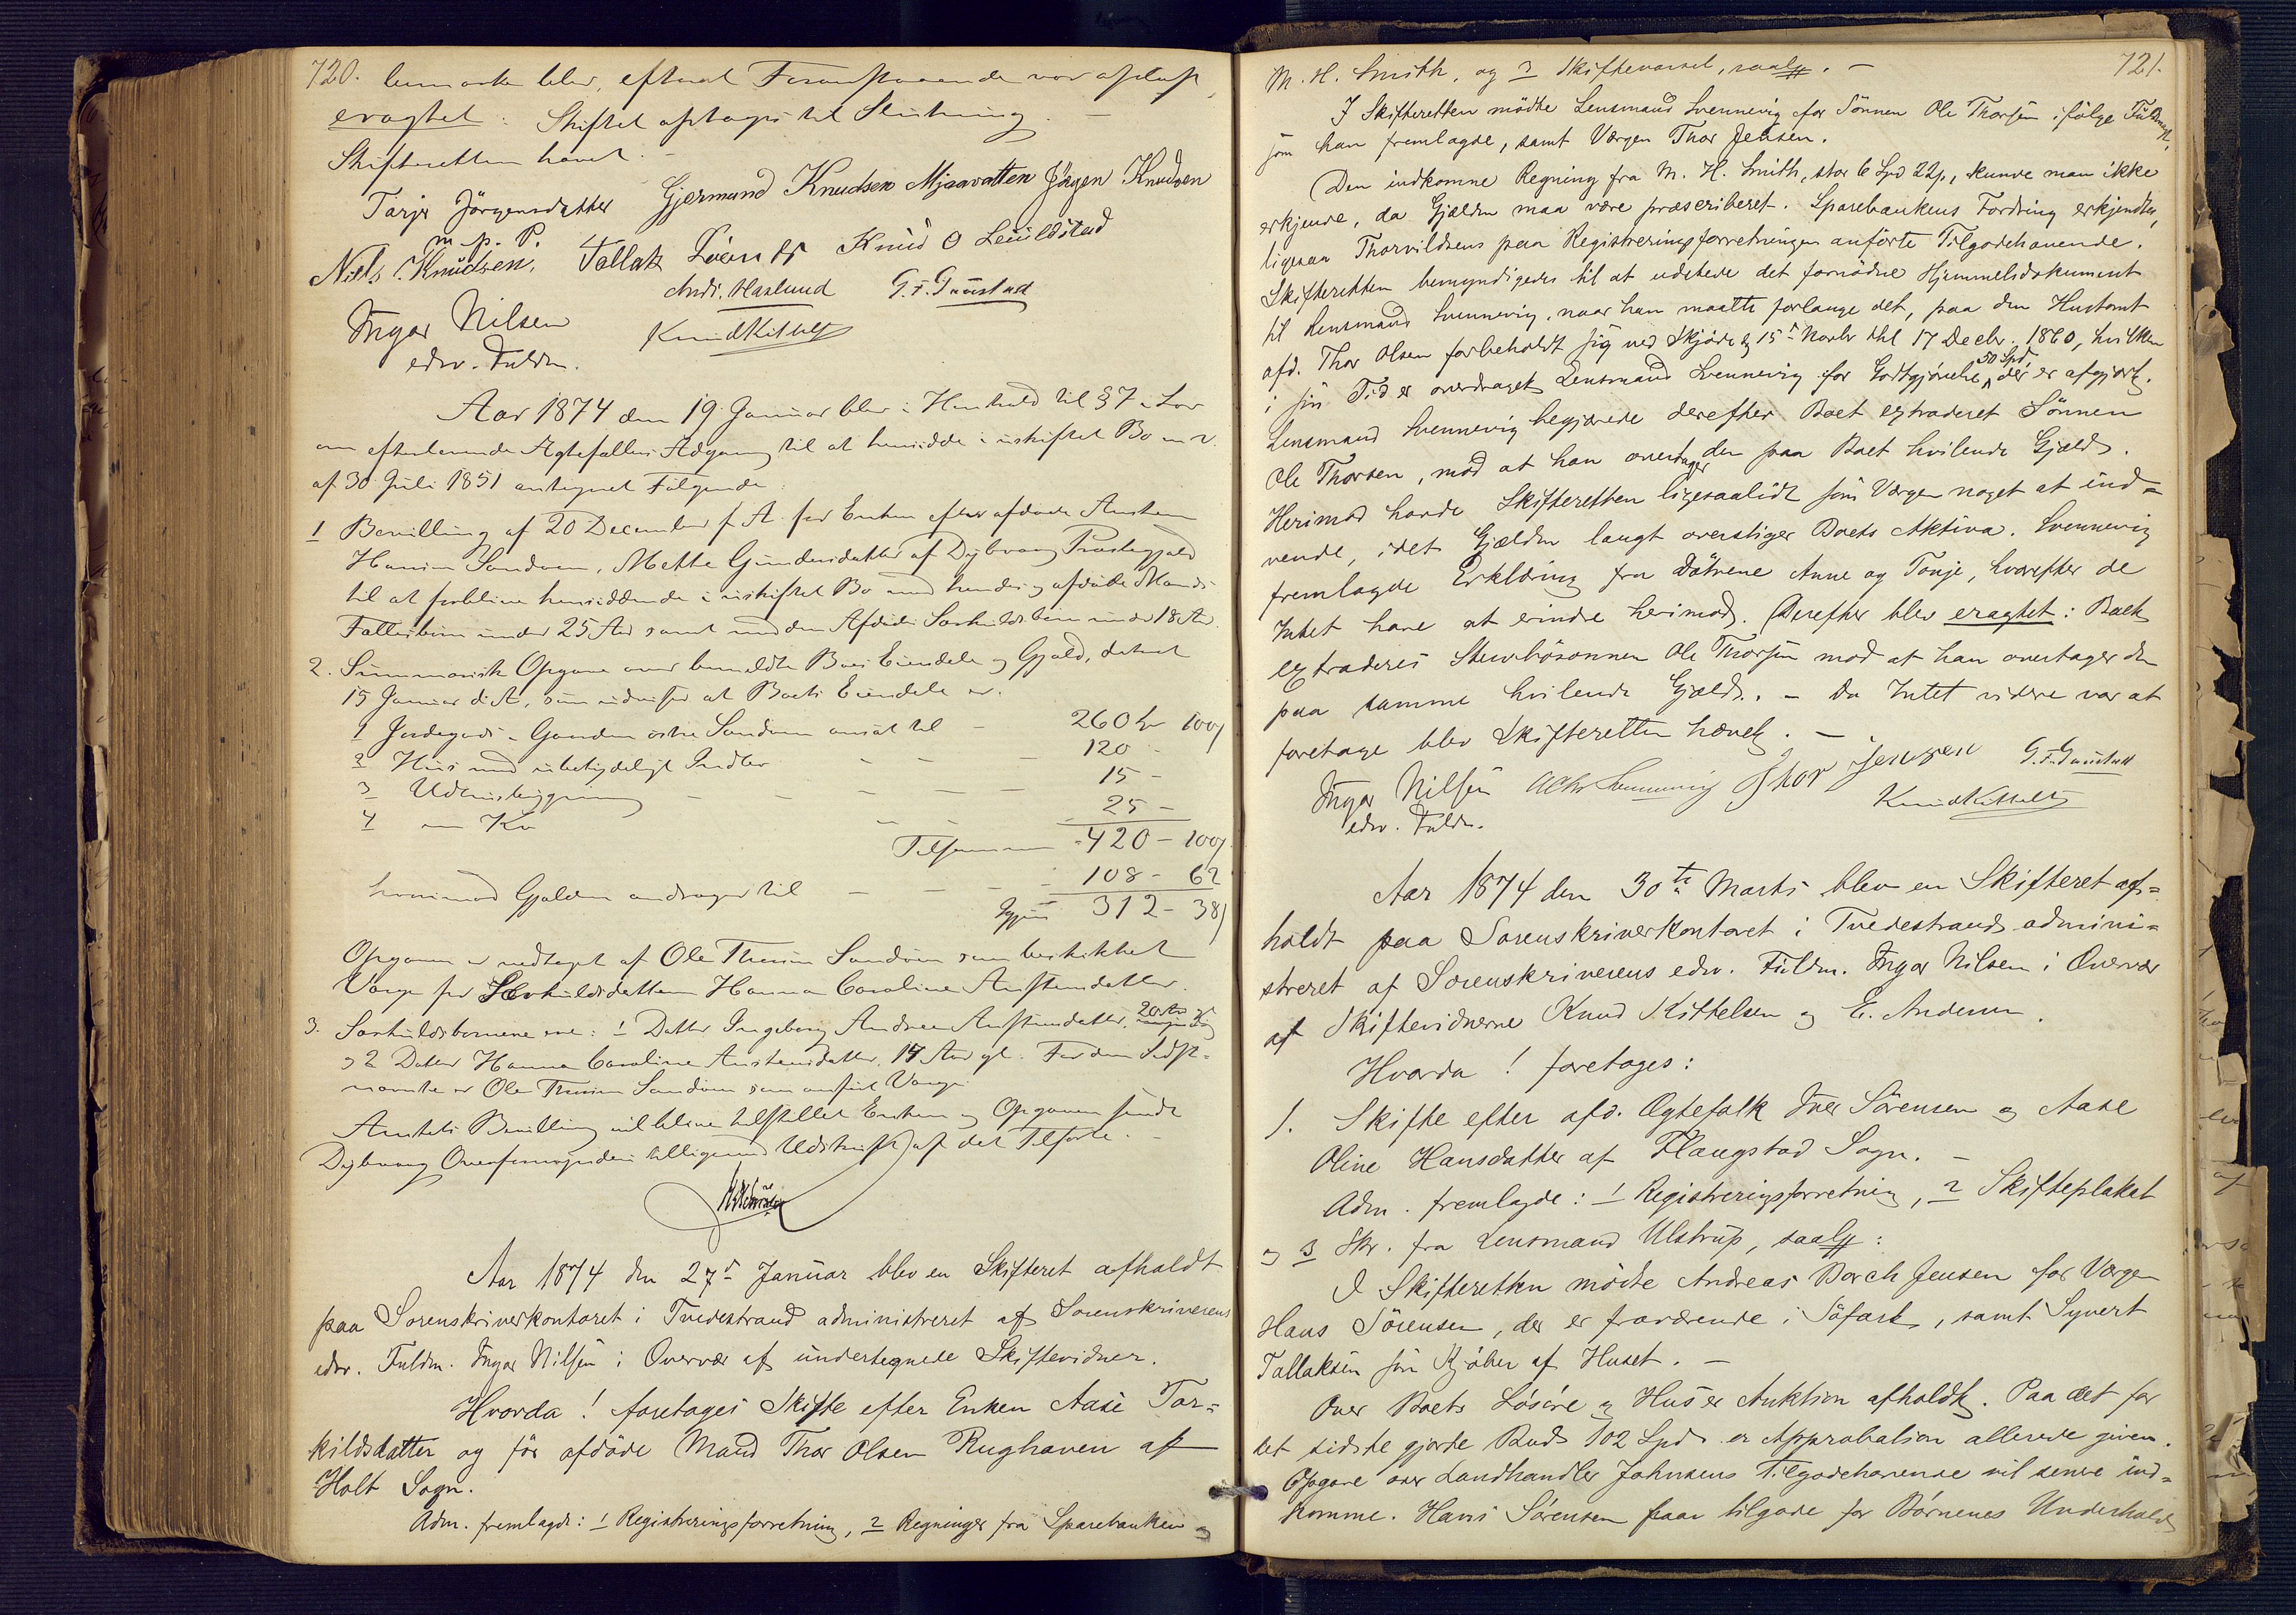 720. bemærke blev, efterat Foranstaaende var oplæst,
eragtet: Skiftet optages til Slutning. —
Skifteretten hævet. —
Tarje Jörgensdatter Gjermund Knudsen Mjaavatten Jörgen Knudsen
m. p. P.
Niels Knudsen. Tallak Knud O Leüildstad
Andr. Haslund G. F. Gunstad
Inger Nilsen Knud Kittels
edsv. Fuldm.
Aar 1874 den 19 Januar blev i Henhold til § 7 i Lov
om efterlevende Ægtefælles Adgang til at hensidde i uskiftet Bo m. v.
af 30 Juli 1851 antegnet Følgende
1 Bevilling af 20 December f. A. for Enken efter afdøde Austen
Hansen Sandøen, Mette Gundersdatter af Dybvaag Præstegjæld
til at forblive hensiddende i uskiftet Bo med hendes og afdøde Mands
Fællesbørn under 25 Aar samt med den Afdødes Særkuldsbørn under 18 Aar.
2. Summarisk Opgave over bemeldte Boes Eiendele og Gjæld, dateret
15 Januar d. A., som udviser at Boets Eiendele er.
1 Jordegods i Gaarden østre Sandøen ansat til — 260 Spd 100 s
2 Huus med ubetydeligt Indbo — — — 120 -
3 Udhuusbygning — — — — — 15 -
4 en Ko — — 25 -
Tilsammen 420 - 100 s
hvorimod Gjælden andrager til — — — — 108 - 62
Igjen 312 - 38 s
Opgaven er vedtaget af Ole Thorsen Sandøen som beskikket
Værge for Særkuldsdatteren Hanna Caroline Austensdatter.
3. Særkuldsbørnene ere: 1 Datter Ingeborg Andrea Austensdatter, 20 Aar
og 2 Datter Hanna Caroline Austensdatter, 17 Aar gl. For den Sidst-
nævnte er Ole Thorsen Sandøen som anført Værge.
Amtets Bevilling vil blive tilstillet Enken og Opgaven sendt
Dybvaag Overformynderi tilligemed Udskrift af det Tilførte. —
Aar 1874 den 27de Januar blev en Skifteret afholdt
paa Sorenskriverkontoret i Tvedestrand administreret af Sorenskriverens
edsv. Fuldm. Inger Nilsen i Overvær af undertegnede Skiftevidner.
Hvorda! foretoges Skifte efter Enken Aase Tar=
kildsdatter og før afdöde Mand Thor Olsen Rughaven af
Holt Sogn.
Adm. fremlagde: 1 Registreringsforretning, 2 Regninger fra Sparebanken og
721.
M. H. Smith, og 3 Skiftevarsel, saal. —
I Skifteretten mödte Lensmand Svennevig for Sönnen Ole Thorsen ifølge Fuldmagt,
som han fremlagde, samt Værgen Thor Jensen.
Den indkomne Regning fra M. H. Smith, stor 6 Spd 22 s, kunde man ikke
erkjende, da Gjælden maa være præscriberet. Sparebankens Fordring erkjendtes,
ligesaa Thorvildsens paa Registreringsforretningen anførte Tilgodehavende.
Skifteretten bemyndigedes til at udstede det fornödne Hjemmelsdokument
til Lensmand Svennevig, naar han maatte forlange det, paa den Hustomt
afd. Thor Olsen forbeholdt sig ved Skjöde af 15de Novbr thl 17 Decbr. 1860, hvilken
i sin Tid er overdraget Lensmand Svennevig for Godtgjørelse, 50 Spd, der er afgjort.
Lensmand Svennevig begjærede derefter Boet extraderet Sönnen
Ole Thorsen, mod at han overtager den paa Boet hvilende Gjæld.
Herimod havde Skifteretten ligesaalidt som Værgen noget at ind=
vende, idet Gjælden langt overstiger Boets Aktiva. Svennevig
fremlagde Erklæring fra Døtrene Anne og Tonje, hvorefter de
Intet have at erindre herimod. Derefter blev eragtet: Boet
extraderes Stervbösonnen Ole Thorsen mod at han overtager den
paa samme hvilende Gjæld. — Da Intet videre var at
foretage blev Skifteretten hævet. —
Inger Nilsen Svennevig Thor Jensen G. F. Gunstad
edsv. Fuldm. Knud Kittels
Aar 1874 den 30te Marts blev en Skifteret af=
holdt paa Sorenskriverkontoret i Tvedestrand admini=
streret af Sorenskriverens edsv. Fuldm. Inger Nilsen i Overvær
af Skiftevidnerne Knud Kittelsen og E. Andersen.
Hvorda! foretoges:
1. Skifte efter afd. Ægtefolk Iver Sörensen og Aase
Oline Hansdatter af Flangstad Sogn. —
Adm. fremlagde: 1 Registreringsforretning, 2 Skifteplakat
og 3 Skr. fra Lensmand Ulstrup, saal:
I Skifteretten mödte Andreas Borch Jensen for Værgen
Hans Sörensen, der er fraværende i Söfart, samt Syvert
Tallaksen som Kjöber af Huset. —
Over Boets Lösöre og Hus er Auktion afholdt. Paa det for
det sidste gjorte Bud 102 Spd. er Approbation allerede given.
Opgave over Landhandler Johnsens Tilgodehavende vil senere ind=
komme. Hans Sörensen faar tilgode for Børnenes Underhold